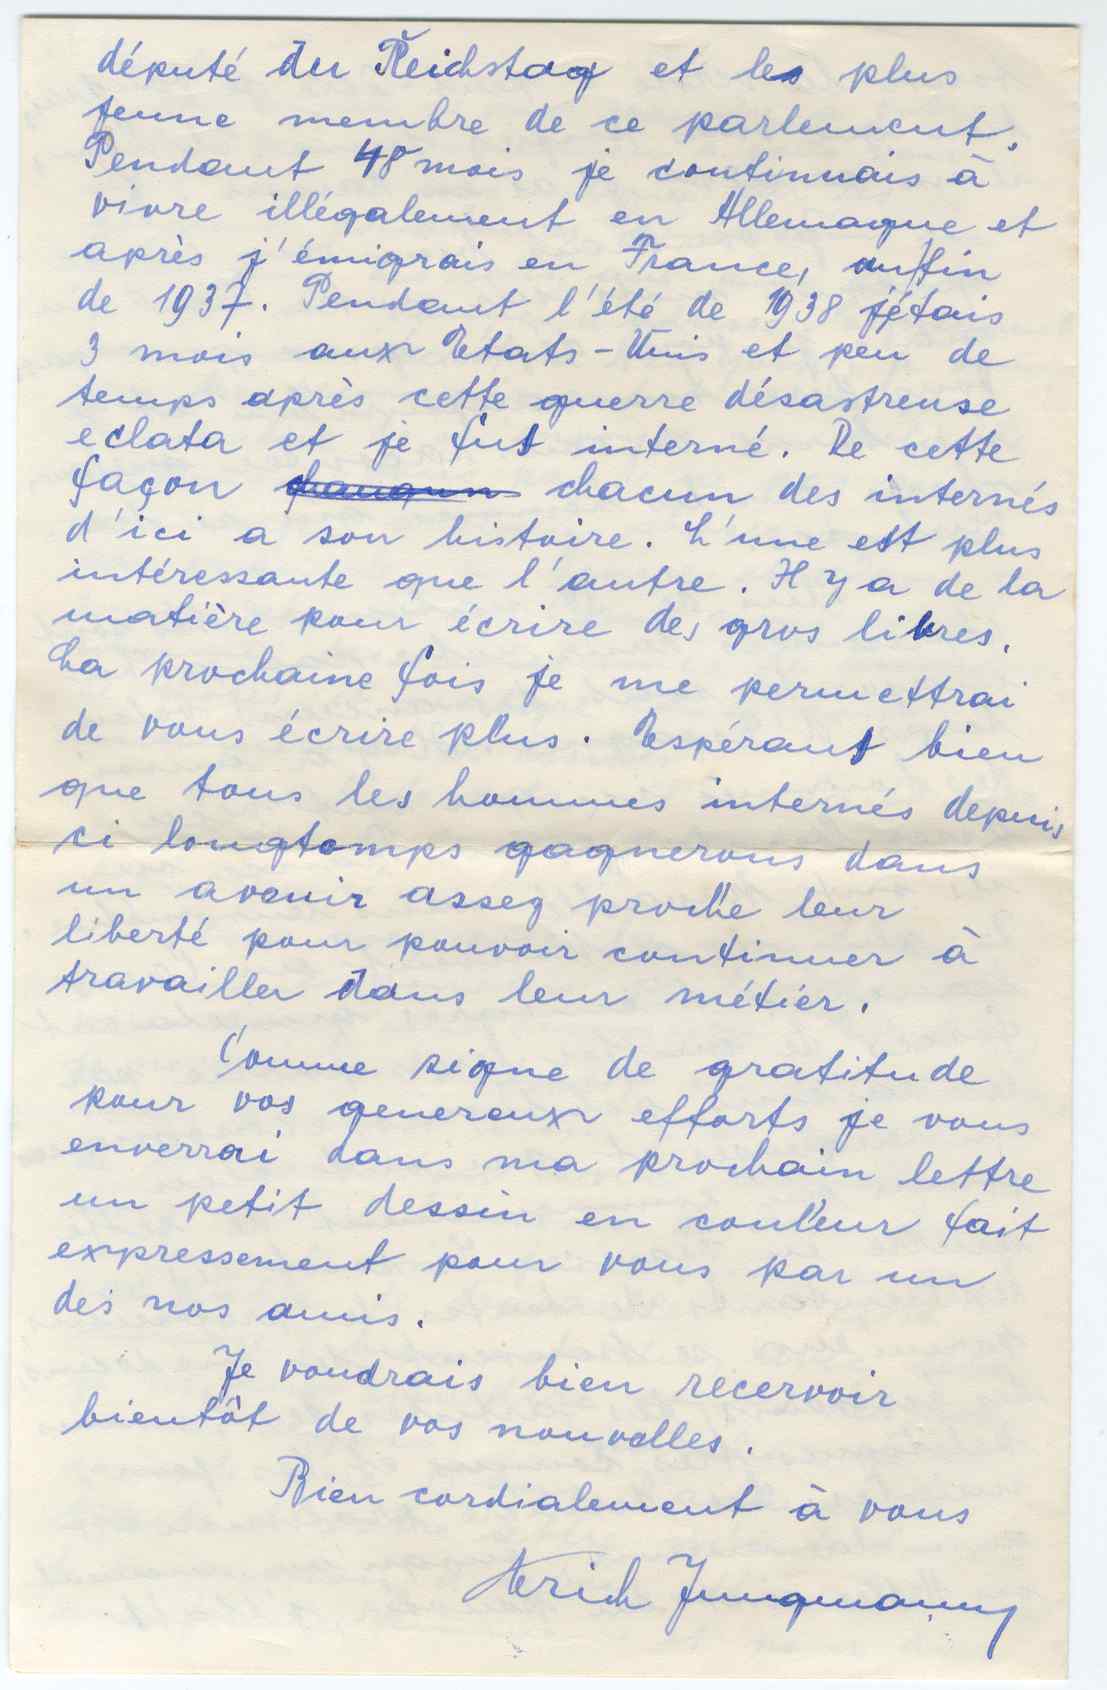 député du Reichstag et les plus
jeune membre de ce parlement.
Pendant 48 mois je continuais à
vivre illégalement en Allemagne et
après j'émigrais en France, fin
de 1937. Pendant l'été de 1938 j'étais
3 mois aux Etats-Unis et peu de
temps après cette guerre désastreuse
eclata et je fus interné. De cette
façon chacun des internés
d'ici a son histoire. L'une est plus
intéressante que l'autre. Il y a de la
matière pour écrire des gros livres.
La prochaine fois je me permettrai
de vous écrire plus. Espérant bien
que tous les hommes internés depuis
ci longtomps gagnerons dans
un avenir assez proche leur
liberté pour pouvoir continuer à
travailler dans leur métier.
Comme signe de gratitude
pour vos genereux efforts je vous
enverrai dans ma prochain lettre
un petit dessin en couleur fait
expressement pour vous par un
des nos amis.
Je voudrais bien recervoir
bientôt de vos nouvelles.
Bien cordialement à vous
Erich Jungmann